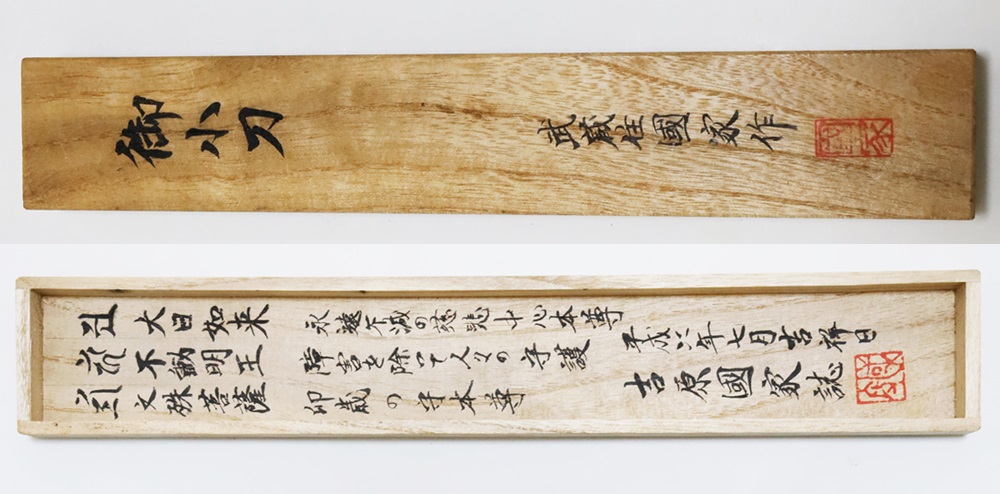 御小刀
武蔵住國家作
大日如来
不動明王
文殊菩薩
永遠不滅の慈悲十心本尊
障害を除いて人々の守護
卯歳の守本尊
平成八年七月吉祥日
吉原國家誌